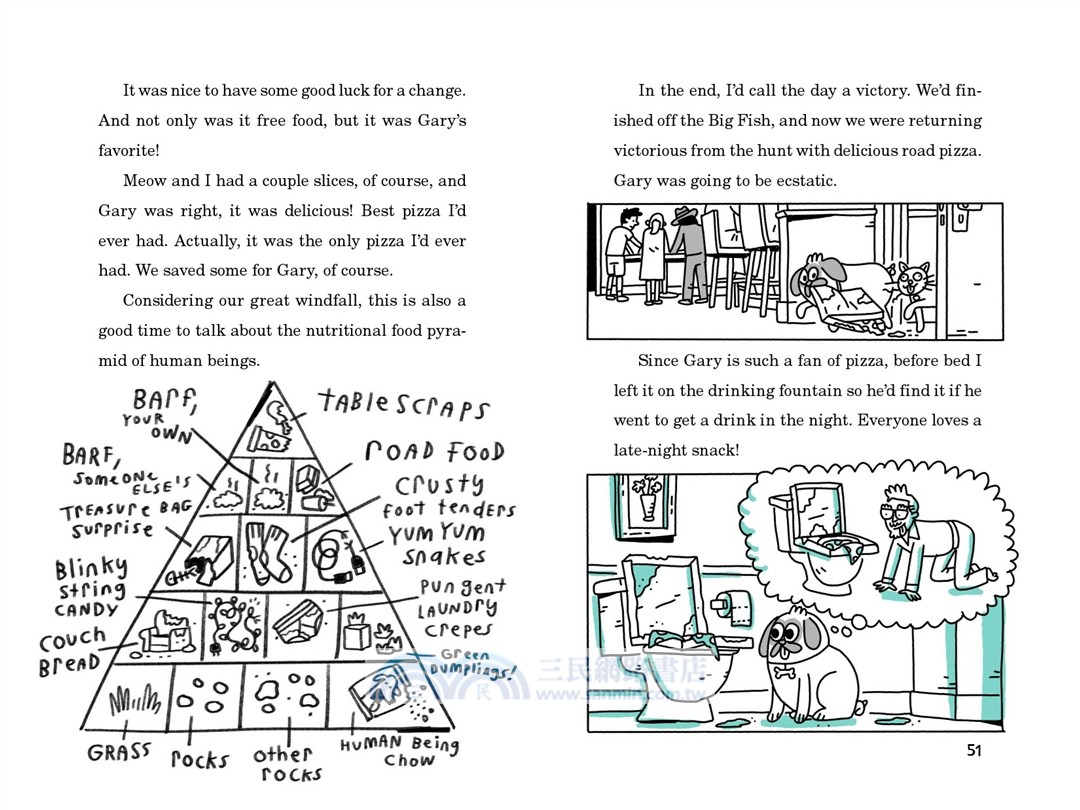 It was nice to have some good luck for a change.
And not only was it free food, but it was Gary's
favorite!
Meow and I had a couple slices, of course, and
Gary was right, it was delicious! Best pizza I'd
ever had. Actually, it was the only pizza I'd ever
had. We saved some for Gary, of course.
Considering our great windfall, this is also a
good time to talk about the nutritional food pyra-
mid of human beings.
BARF,
YOUR
OWN
TABLE SCRAPS
BARF,
SOMEONE
ELSE'S
ROAD FOOD
TREASURE BAG
SURPRISE
CRUSTY
FOOT TENDERS
YUM YUM
SNAKES
BLINKY
STRING
CANDY
PUNGENT
LAUNDRY
CREPES
COUCH
BREAD
GREEN
DUMPLINGS!
GRASS
ROCKS
OTHER
ROCKS
HUMAN BEING
CHOW
In the end, I'd call the day a victory. We'd fin-
ished off the Big Fish, and now we were returning
victorious from the hunt with delicious road pizza.
Gary was going to be ecstatic.
Since Gary is such a fan of pizza, before bed I
left it on the drinking fountain so he'd find it if he
went to get a drink in the night. Everyone loves a
late-night snack!
51
三民網路書店
民
www.sanmin.com.tw